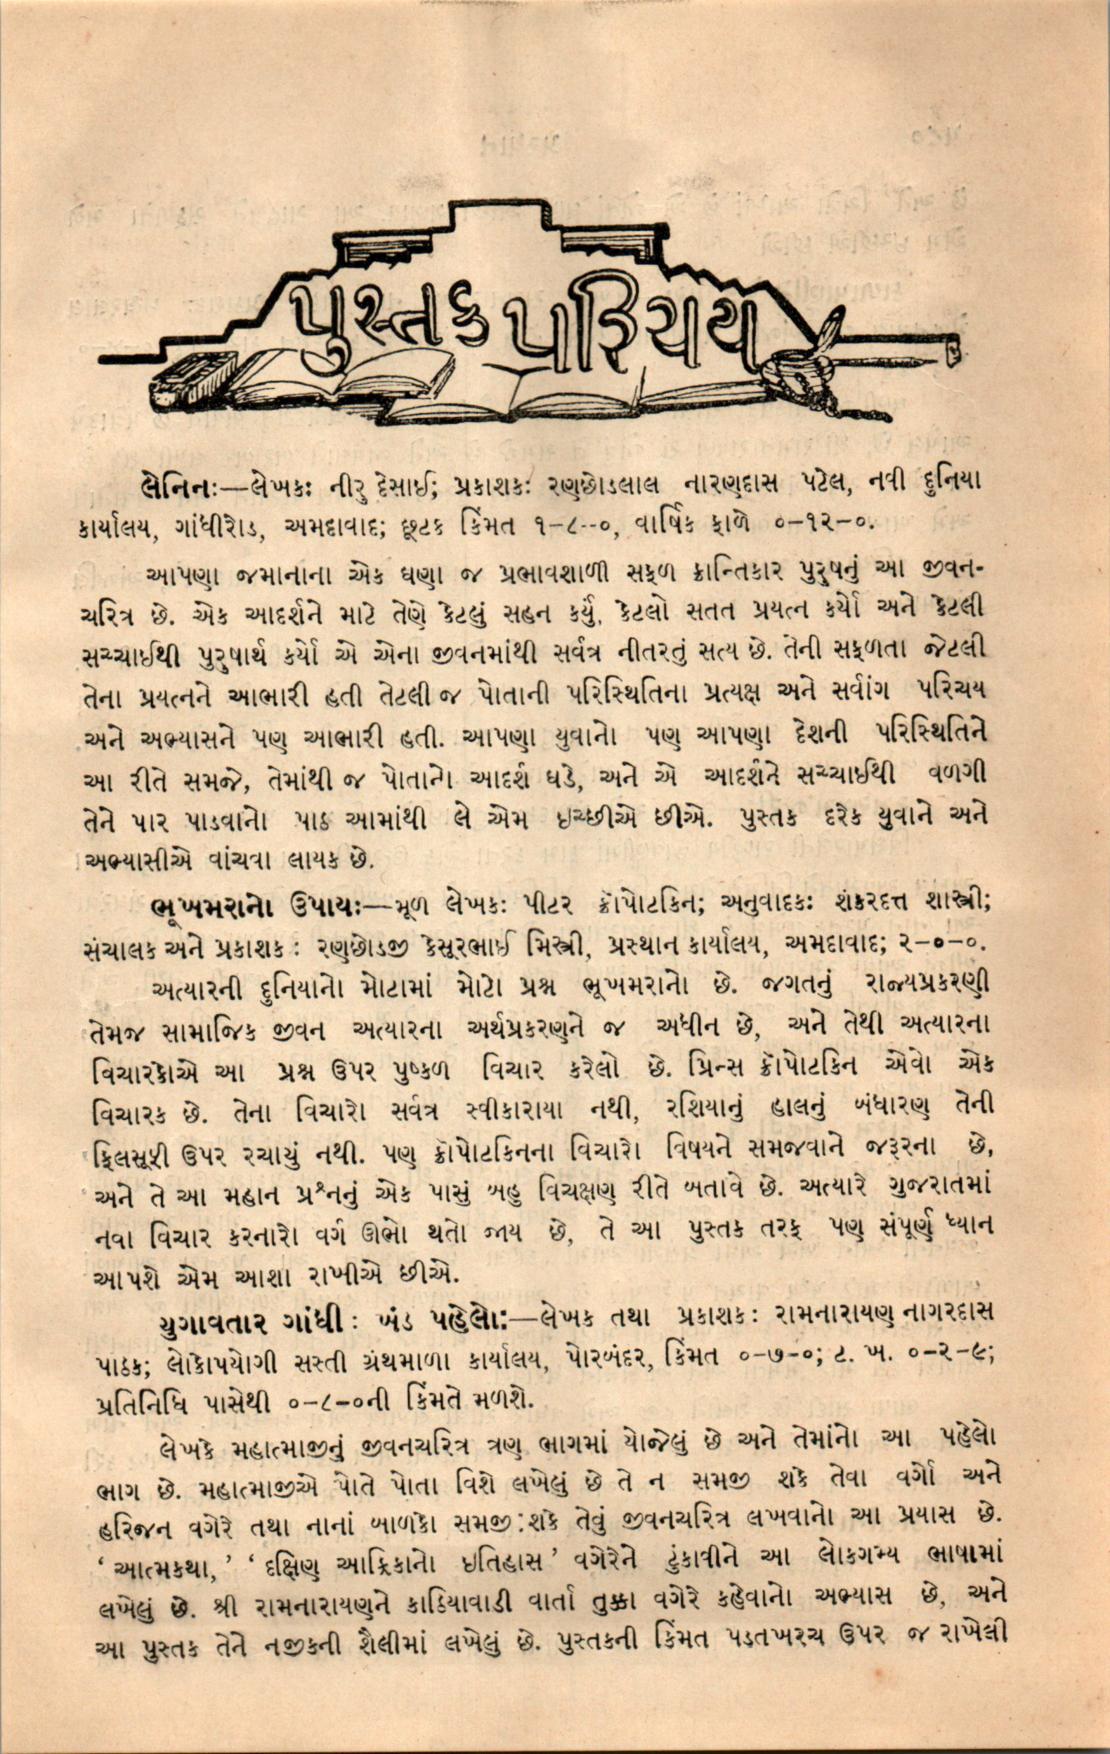 પુસ્તક પરિચય
લેનિન:—લેખક: નીરુ દેસાઈ; પ્રકાશક: રણછોડલાલ નારણદાસ પટેલ, નવી દુનિયા
કાર્યાલય, ગાંધીરોડ, અમદાવાદ; છૂટક કિંમત ૧-૮-૦, વાર્ષિક ફાળે ૦-૧૨-૦.
આપણા જમાનાના એક ઘણા જ પ્રભાવશાળી સફળ ક્રાન્તિકાર પુરુષનું આ જીવન-
ચરિત્ર છે. એક આદર્શને માટે તેણે કેટલું સહન કર્યું, કેટલો સતત પ્રયત્ન કર્યો અને કેટલી
સચ્ચાઈથી પુરુષાર્થ કર્યો એ એના જીવનમાંથી સર્વત્ર નીતરતું સત્ય છે. તેની સફળતા જેટલી
તેના પ્રયત્નને આભારી હતી તેટલી જ પોતાની પરિસ્થિતિના પ્રત્યક્ષ અને સર્વાંગ પરિચય
અને અભ્યાસને પણ આભારી હતી. આપણા યુવાનો પણ આપણા દેશની પરિસ્થિતિને
આ રીતે સમજે, તેમાંથી જ પોતાનો આદર્શ ઘડે, અને એ આદર્શને સચ્ચાઈથી વળગી
તેને પાર પાડવાનો પાઠ આમાંથી લે એમ ઇચ્છીએ છીએ. પુસ્તક દરેક યુવાને અને
અભ્યાસીએ વાંચવા લાયક છે.
ભૂખમરાનો ઉપાય:—મૂળ લેખક: પીટર ક્રૉપોટકિન; અનુવાદક: શંકરદત્ત શાસ્ત્રી;
સંચાલક અને પ્રકાશક : રણછોડજી કેસૂરભાઈ મિસ્ત્રી, પ્રસ્થાન કાર્યાલય, અમદાવાદ; ૨-૦-૦.
અત્યારની દુનિયાનો મોટામાં મોટો પ્રશ્ન ભૂખમરાનો છે. જગતનું રાજ્યપ્રકરણી
તેમજ સામાજિક જીવન અત્યારના અર્થપ્રકરણને જ અધીન છે, અને તેથી અત્યારના
વિચારકોએ આ પ્રશ્ન ઉપર પુષ્કળ વિચાર કરેલો છે. પ્રિન્સ ક્રૉપોટકિન એવો એક
વિચારક છે. તેના વિચારો સર્વત્ર સ્વીકારાયા નથી, રશિયાનું હાલનું બંધારણ તેની
ફિલસૂફી ઉપર રચાયું નથી. પણ ક્રૉપોટકિનના વિચારો વિષયને સમજવાને જરૂરના છે,
અને તે આ મહાન પ્રશ્નનું એક પાસું બહુ વિચક્ષણ રીતે બતાવે છે. અત્યારે ગુજરાતમાં
નવા વિચાર કરનારો વર્ગ ઊભો થતો જાય છે, તે આ પુસ્તક તરફ પણ સંપૂર્ણ ધ્યાન
આપશે એમ આશા રાખીએ છીએ.
યુગાવતાર ગાંધી : ખંડ પહેલો:—લેખક તથા પ્રકાશક : રામનારાયણ નાગરદાસ
પાઠક; લોકોપયોગી સસ્તી ગ્રંથમાળા કાર્યાલય, પોરબંદર, કિંમત ૦-૭-૦; ટ. ખ. ૦-૨-૯;
પ્રતિનિધિ પાસેથી ૦-૮-૦ની કિંમતે મળશે.
લેખકે મહાત્માજીનું જીવનચરિત્ર ત્રણ ભાગમાં યોજેલું છે અને તેમાંનો આ પહેલો
ભાગ છે. મહાત્માજીએ પોતે પોતા વિશે લખેલું છે તે ન સમજી શકે તેવા વર્ગો અને
હરિજન વગેરે તથા નાનાં બાળકો સમજી શકે તેવું જીવનચરિત્ર લખવાનો આ પ્રયાસ છે.
‘ આત્મકથા, ’ ‘ દક્ષિણ આફ્રિકાનો ઇતિહાસ ’ વગેરેને ટુંકાવીને આ લોકગમ્ય ભાષામાં
લખેલું છે. શ્રી રામનારાયણને કાઠિયાવાડી વાર્તા તુક્કા વગેરે કહેવાનો અભ્યાસ છે, અને
આ પુસ્તક તેને નજીકની શૈલીમાં લખેલું છે. પુસ્તકની કિંમત પડતખરચ ઉપર જ રાખેલી